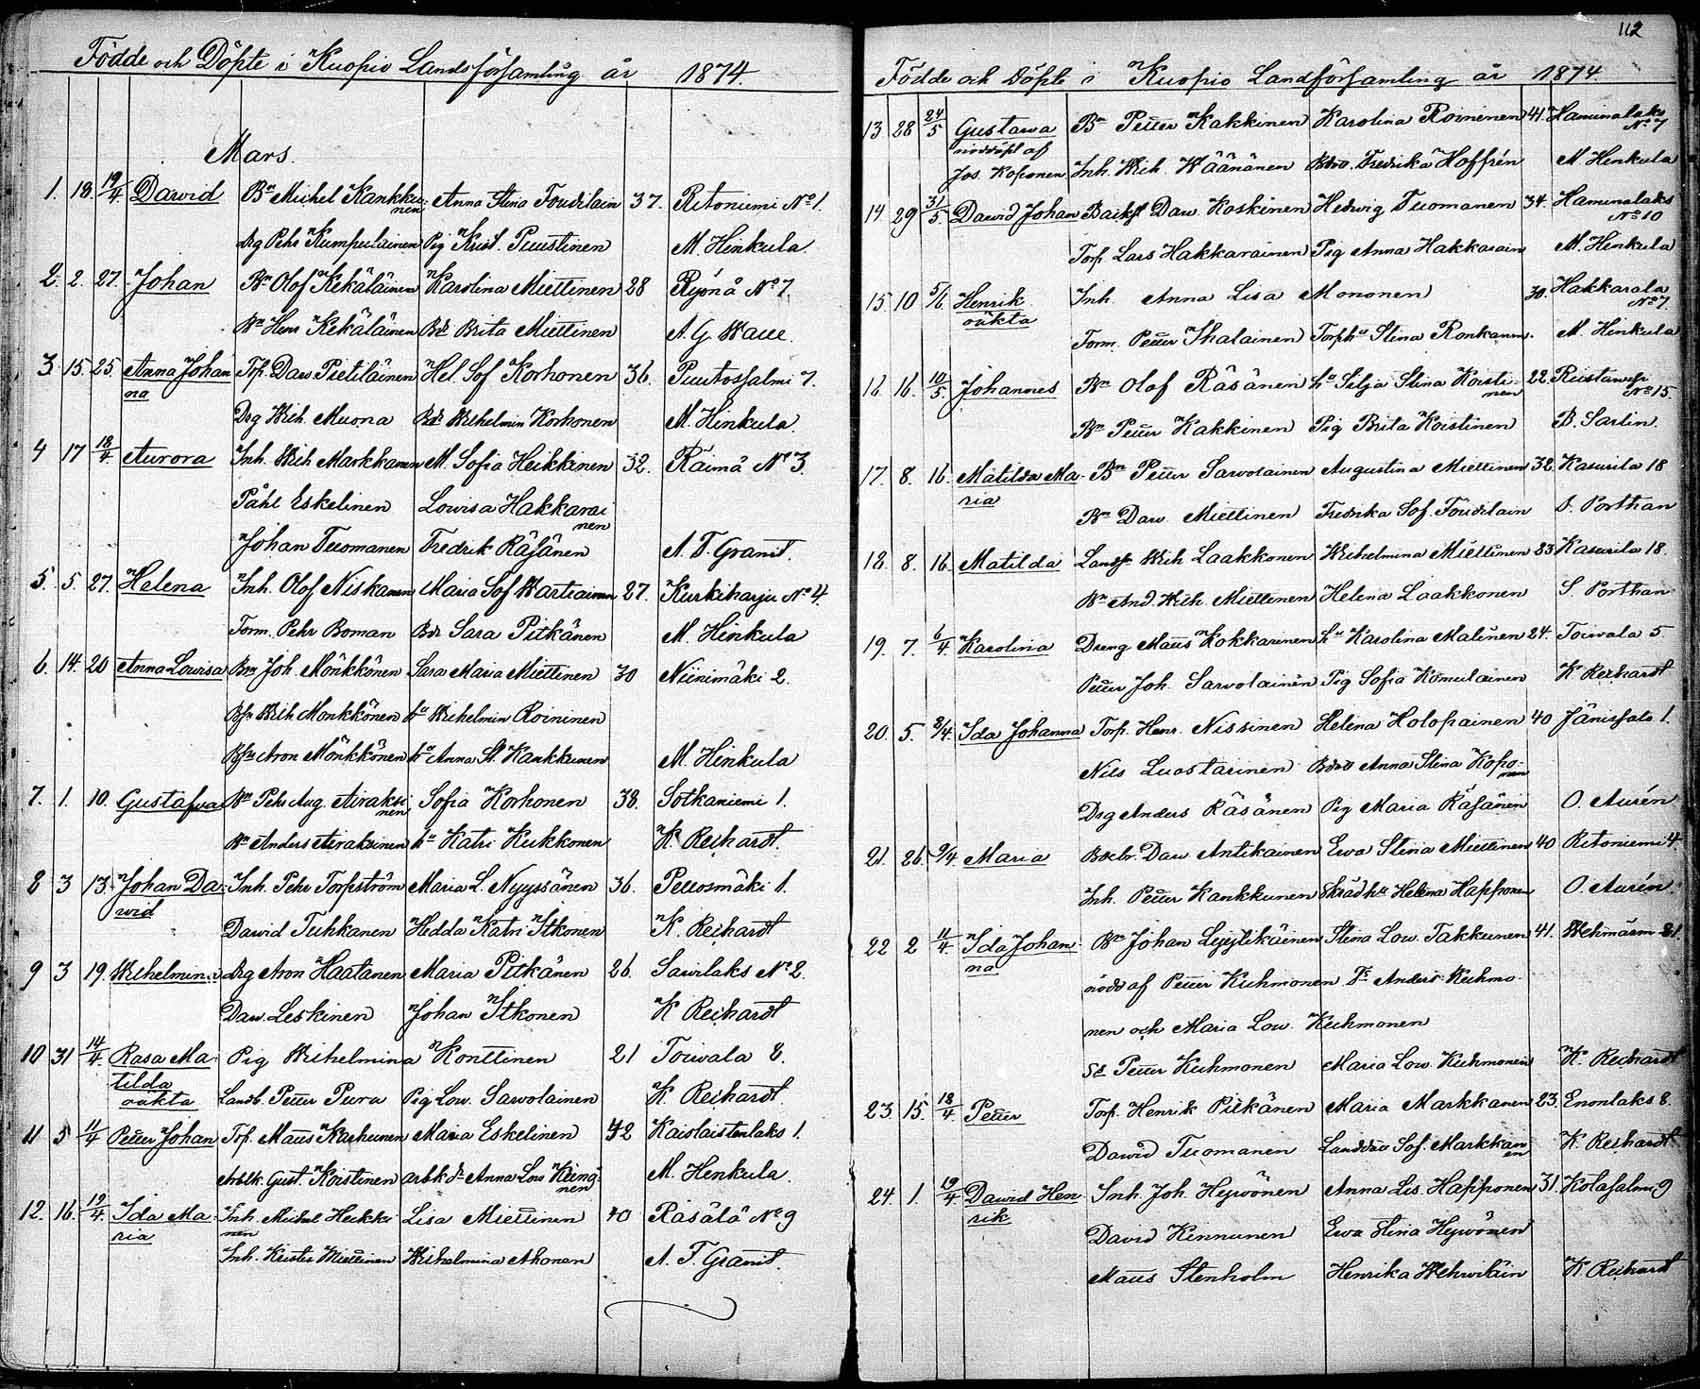 Födde och Döpte i Kuopio Landsförsamling år 1874.
Mars.
1. 18. 19/4 Dawid Bn Michel Kankku- Anna Stina Foudilain 37. Ritoniemi No 1.
nen
Drg Pehr Kumpulainen Pig Krist. Puustinen M. Hinkula.
2. 2. 27. Johan Bn Olof Kekäläinen Karolina Miettinen 28 Ryönä No 7.
Bn Henr Kekäläinen Bdr Brita Miettinen A. G. Waue.
3. 15. 25. Anna Johan Tp. Daw Pietiläinen Hel. Sof Korhonen 36. Puutosalmi 7.
na
Drg Wilh. Muona Bdr Wilhelmin Korhonen M. Hinkula.
4 17 18/4 Aurora Inh. Wilh Markkanen M. Sofia Heikkinen 32. Räimä No 3.
Påhl Eskelinen Lowisa Hakkarai
nen
Johan Tuomanen Fredrik Räsänen A. F. Granit.
5. 5. 27. Helena Inh. Olof Niskanen Maria Sof Wartiainen 27. Kurkiharju No 4.
Torm. Pehr Boman Bdr Sara Pitkänen M. Hinkula
6. 14. 20 Anna Lowisa Bn Joh. Mönkkönen Sara Maria Miettinen 30 Niinimäki 2.
Bsn Wilh Monkkönen ha Wilhelmin Roininen
Bsn Aron Mönkkönen ha Anna St. Kankkunen M. Hinkula
7. 1. 10. Gustafva Bn Pehr Aug. Airaksi Sofia Korhonen 38. Sotkaniemi 1.
nen
Bn Anders Airaksinen ha Katri Kukkonen K. Reihardt.
8 3 13. Johan Da- Inh. Pehr Torpström Maria L. Nyyssänen 36. Pellosmäki 1.
wid
Dawid Tuhkanen Hedda Katri Itkonen K. Reihardt
9 3 19. Wilhelmina Drg Aron Haatanen Maria Pitkänen 26. Sawilaks No 2.
Daw. Leskinen Johan Itkonen K Reihardt
10 31 14/4. Rosa Ma- Pig Wilhelmina Konttinen 21 Toivala 8.
tilda
oäkta Landb. Petter Pura Pig Low. Sawolainen K. Reihardt.
11 5 11/4 Petter Johan Tp. Matts Karhunen Maria Eskelinen 42 Kaislaistenlaks 1.
Arbtk. Gust. Koistinen arbk dr Anna Low Kling
nen M. Henkula.
12. 16. 19/4. Ida Ma- Inh. Michel Heikki Lisa Miettinen 40 Räsälä No 9
ria nen
Inh. Krister Miettinen Wilhelmina Ahonen A. F. Granit.
112
Födde och Döpte i Kuopio Landförsamling år 1874.
13 28 24/5 Gustawa Bn Petter Kakkinen Karolina Roininen 41. Haminalaks
nöddöpt af No 7
Jos. Koponen Inh. Wilh. Wäänänen Bdr. Fredrika Hoffrén M Henkula
14 29 31/5 Dawid Johan Backst Daw. Koskinen Hedwig Tuomanen 34. Haminalaks
No 10
Torp. Lars Hakkarainen Pig Anna Hakkarain M. Hinkula
15 10 5/6 Henrik Inh. Anna Lisa Mononen 30. Hakkarala
oäkta No 7.
Torm. Petter Ihalainen Torp ha Stina Ronkanen. M. Hinkula
16 16. 10/5. Johannes Bn Olof Räsänen ha Silja Stina Koisti- 22. Reistanefr
nen No 15.
Bn Petter Kakkinen Pig Brita Koistinen B. Sartin.
17. 8. 16. Matilda Ma- Bn Petter Sawolainen Augustina Miettinen 32. Kasurila 18
ria
Bn Daw Miettinen Fredrika Sof. Foudilain S. Porthan
18. 8. 16. Matilda Landb Wilh Laakkonen Wilhelmina Miettinen 23. Kasurila 18.
Bn And. Wilh. Miettinen Helena Laakkonen S. Porthan
19. 7. 6/4. Karolina Dreng Matts Kokkarinen ha Karolina Malinen 24. Toiwala 5
Petter Joh. Sawolainen Pig Sofia Komulainen K. Reihardt
20. 5. 8/4. Ida Johanna Torp. Henr. Nissinen Helena Holopainen 40 Jänissalo 1.
Nils Luostarinen Bdr Anna Stina Kopo-
nen
Drg Anders Räsänen Pig Maria Räsänen O. Aurén
21. 26. 9/4. Maria Backr. Daw Antikainen Ewa Stina Miettinen 40 Ritoniemi 4.
Inh. Petter Kankkunen Skräd ha Helena Happonen O. Aurén
22 2 11/4. Ida Johan- Bn Johan Lyytikäinen Stina Low. Takkunen 41. Wehmärm 21.
na
nödd af Petter Kuhmonen F: Anders Kuhmo-
nen och Maria Low. Kuhmonen
Sd Petter Kuhmonen Maria Low. Kuhmonen K. Reihardt
23. 15. 18/4 Petter Torp. Henrik Pitkänen Maria Markkanen 23. Enonlaks 8
Dawid Tuomanen Landdr Sof. Markkan
en K. Reihardt
24. 1. 19/4 Dawid Hen Inh. Joh. Heywönen Anna Lis. Happonen 31. Kotasalmi 9
rik
David Kinnunen Ewa Stina Heywönen
Matts Stenholm Henrika Wehwiläin K Reihardt